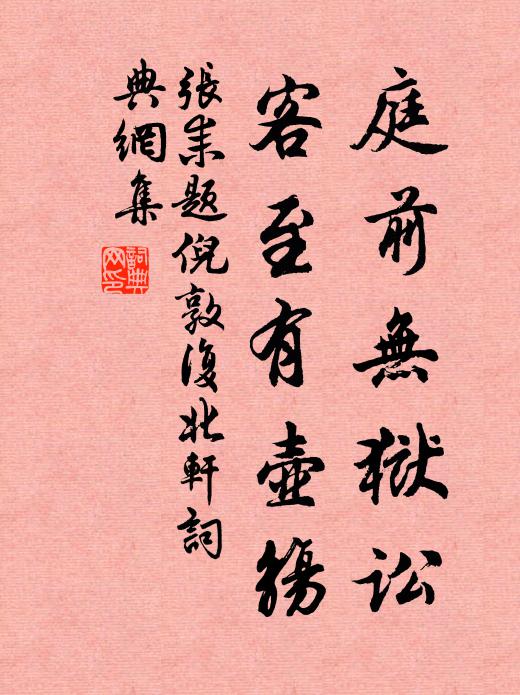 庭前無獄訟
客至有壺觴
張耒題倪敦復北軒詞
典網集
詞典
网印